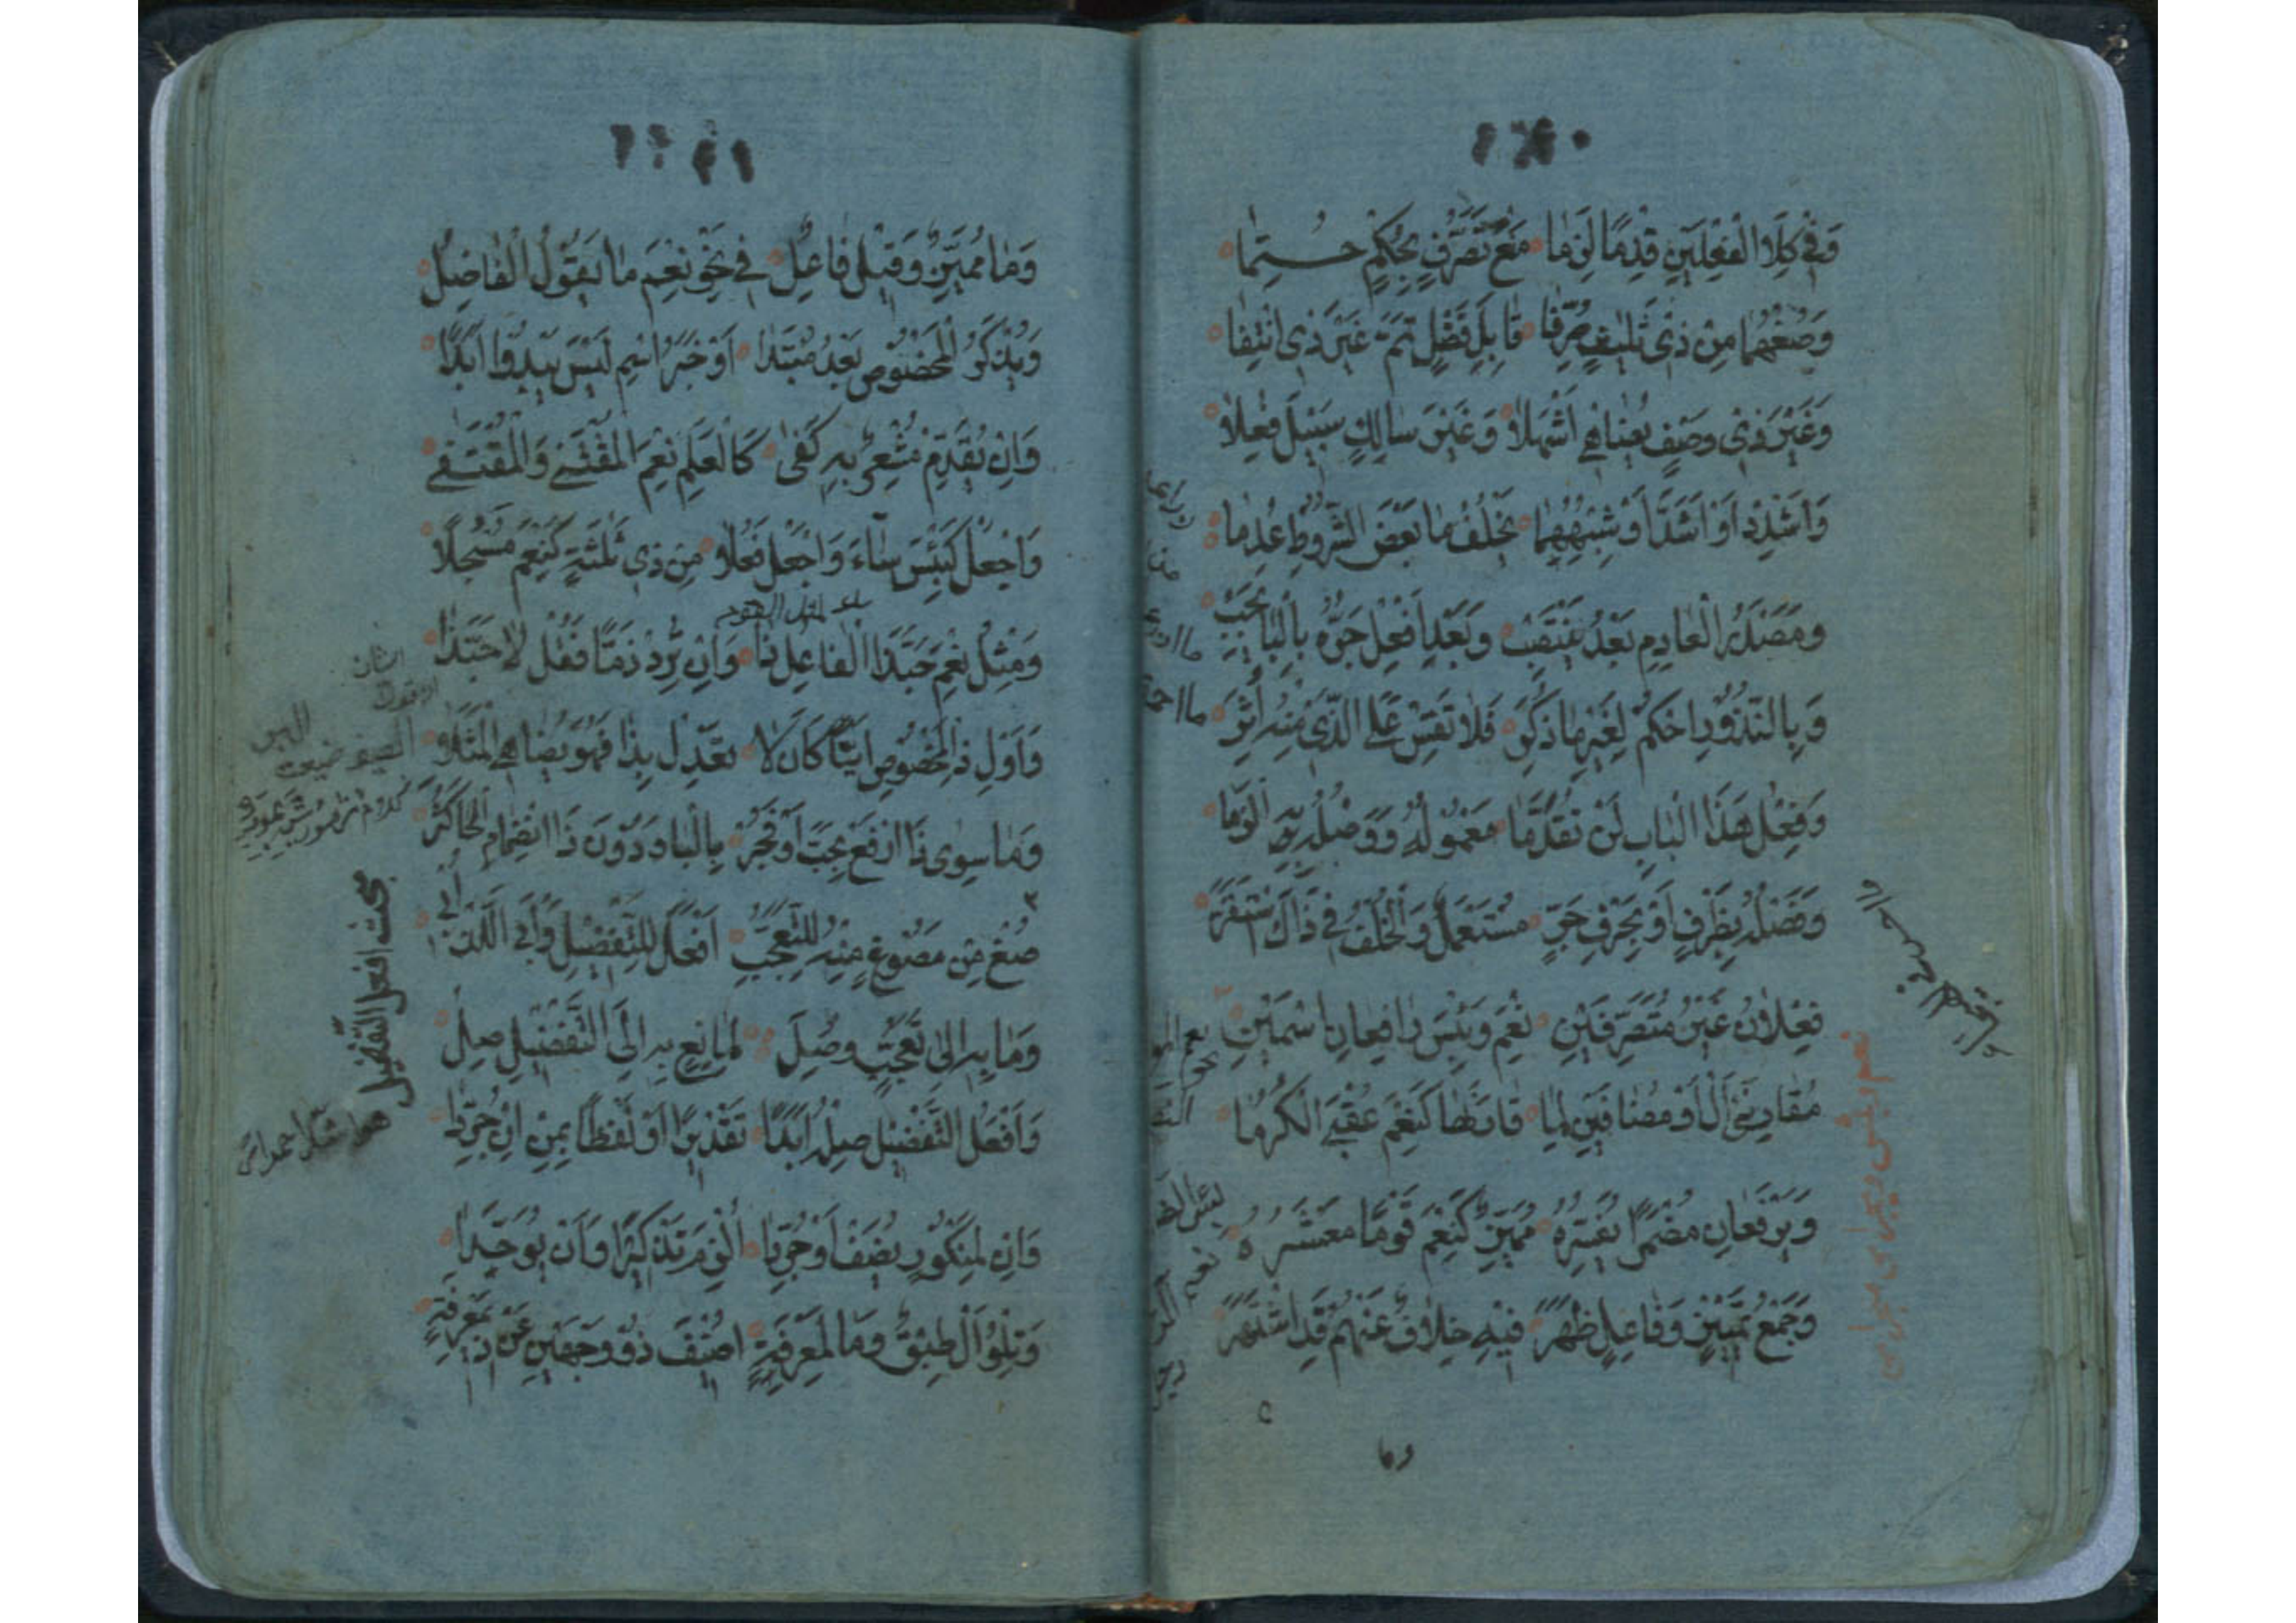 وَفِي كِلَا الْفِعْلَيْنِ قِدْمًا لَزِمَا مَنْعُ تَصَرُّفٍ بِحُكْمٍ حُتِمَا
وَصُغْهُمَا مِنْ ذِي ثَلٰثٍ صُرِّفَا قَابِلِ فَضْلٍ تَمَّ غَيْرِ ذِي انْتِفَا
وَغَيْرِ ذِي وَصْفٍ يُضَاهِي اَشْهَلَا وَغَيْرِ سَالِكٍ سَبِيْلَ فُعِلَا
وَاَشْدِدْ اَوْ اَشَدَّ اَوْ شِبْهُهُمَا يَخْلُفُ مَا بَعْضَ الشُّرُوطِ عُدِمَا
وَمَصْدَرُ الْعَادِمِ بَعْدُ يَنْتَصِبْ وَبَعْدَ اَفْعِلْ جَرُّهُ بِالْبَا يَجِبْ
وَبِالنُّدُورِ احْكُمْ لِغَيْرِ مَا ذُكِرْ فَلَا تَقِسْ عَلَى الَّذِي مِنْهُ اُثِرْ
وَفِعْلُ هٰذَا الْبَابِ لَنْ يُقَدَّمَا مَعْمُولُهُ وَوَصْلُهُ بِهِ الْزَمَا
وَفَصْلُهُ بِظَرْفٍ اَوْ بِحَرْفِ جَرٍّ مُسْتَعْمَلٌ وَالْخُلْفُ فِي ذَاكَ اسْتَقَرَّ
فِعْلَانِ غَيْرُ مُتَصَرِّفَيْنِ نِعْمَ وَبِئْسَ رَافِعَانِ اسْمَيْنِ
مُقَارِنَيْ اَلْ اَوْ مُضَافَيْنِ لِمَا قَارَنَهَا كَنِعْمَ عُقْبَى الْكُرَمَا
وَيَرْفَعَانِ مُضْمَرًا يُفَسِّرُهُ مُمَيِّزٌ كَنِعْمَ قَوْمًا مَعْشَرُهُ
وَجَمْعُ تَمْيِيْزٍ وَفَاعِلٍ ظَهَرْ فِيْهِ خِلَافٌ عَنْهُمْ قَدِ اشْتَهَرْ
وما
وَمَا مُمَيِّزٌ وَقِيْلَ فَاعِلٌ فِي نَحْوِ نِعْمَ مَا يَقُوْلُ الْفَاضِلُ
وَيُذْكَرُ الْمَخْصُوْصُ بَعْدُ مُبْتَدَا اَوْ خَبَرَ اسْمٍ لَيْسَ يَبْدُوا اَبَدًا
وَاِنْ يُقَدَّمْ مُشْعِرٌ بِهِ كَفٰى كَالْعِلْمُ نِعْمَ الْمُقْتَنٰى وَالْمُقْتَفٰى
وَاجْعَلْ كَبِئْسَ سَآءَ وَاجْعَلْ فَعُلَا مِنْ ذِي ثَلٰثَةٍ كَنِعْمَ مُسْجَلًا
وَمِثْلُ نِعْمَ حَبَّذَا الْفَاعِلُ ذَا وَاِنْ تُرِدْ ذَمًّا فَقُلْ لَا حَبَّذَا
وَاَوْلِ ذَا الْمَخْصُوْصَ اَيًّا كَانَ لَا تَعْدِلْ بِذَا فَهُوَ يُضَاهِي الْمَثَلَا
وَمَا سِوٰى ذَا ارْفَعْ بِحَبَّ اَوْ فَجُرْ بِالْبَا وَدُوْنَ ذَا انْضِمَامُ الْحَا كَثُرَ
صُغْ مِنْ مَصُوْغٍ مِنْهُ لِلتَّعَجُّبِ اَفْعَلَ لِلتَّفْضِيْلِ وَأْبَ اللَّذْ اُبِي
وَمَا بِهِ اِلٰى تَعَجُّبٍ وُصِلَ لِمَانِعٍ بِهِ اِلَى التَّفْضِيْلِ صِلْ
بحث افعل التفضيل
وَاَفْعَلَ التَّفْضِيْلِ صِلْهُ اَبَدًا تَقْدِيْرًا اَوْ لَفْظًا بِمِنْ اِنْ جُرِّدَا
وَاِنْ لِمَنْكُوْرٍ يُضَفْ اَوْ جُرِّدَا اُلْزِمَ تَذْكِيْرًا وَاَنْ يُوَحَّدَا
وَتِلْوُ اَلْ طِبْقٌ وَمَا لِمَعْرِفَةٍ اُضِيْفَ ذُوْ وَجْهَيْنِ عَنْ ذِي مَعْرِفَةٍ